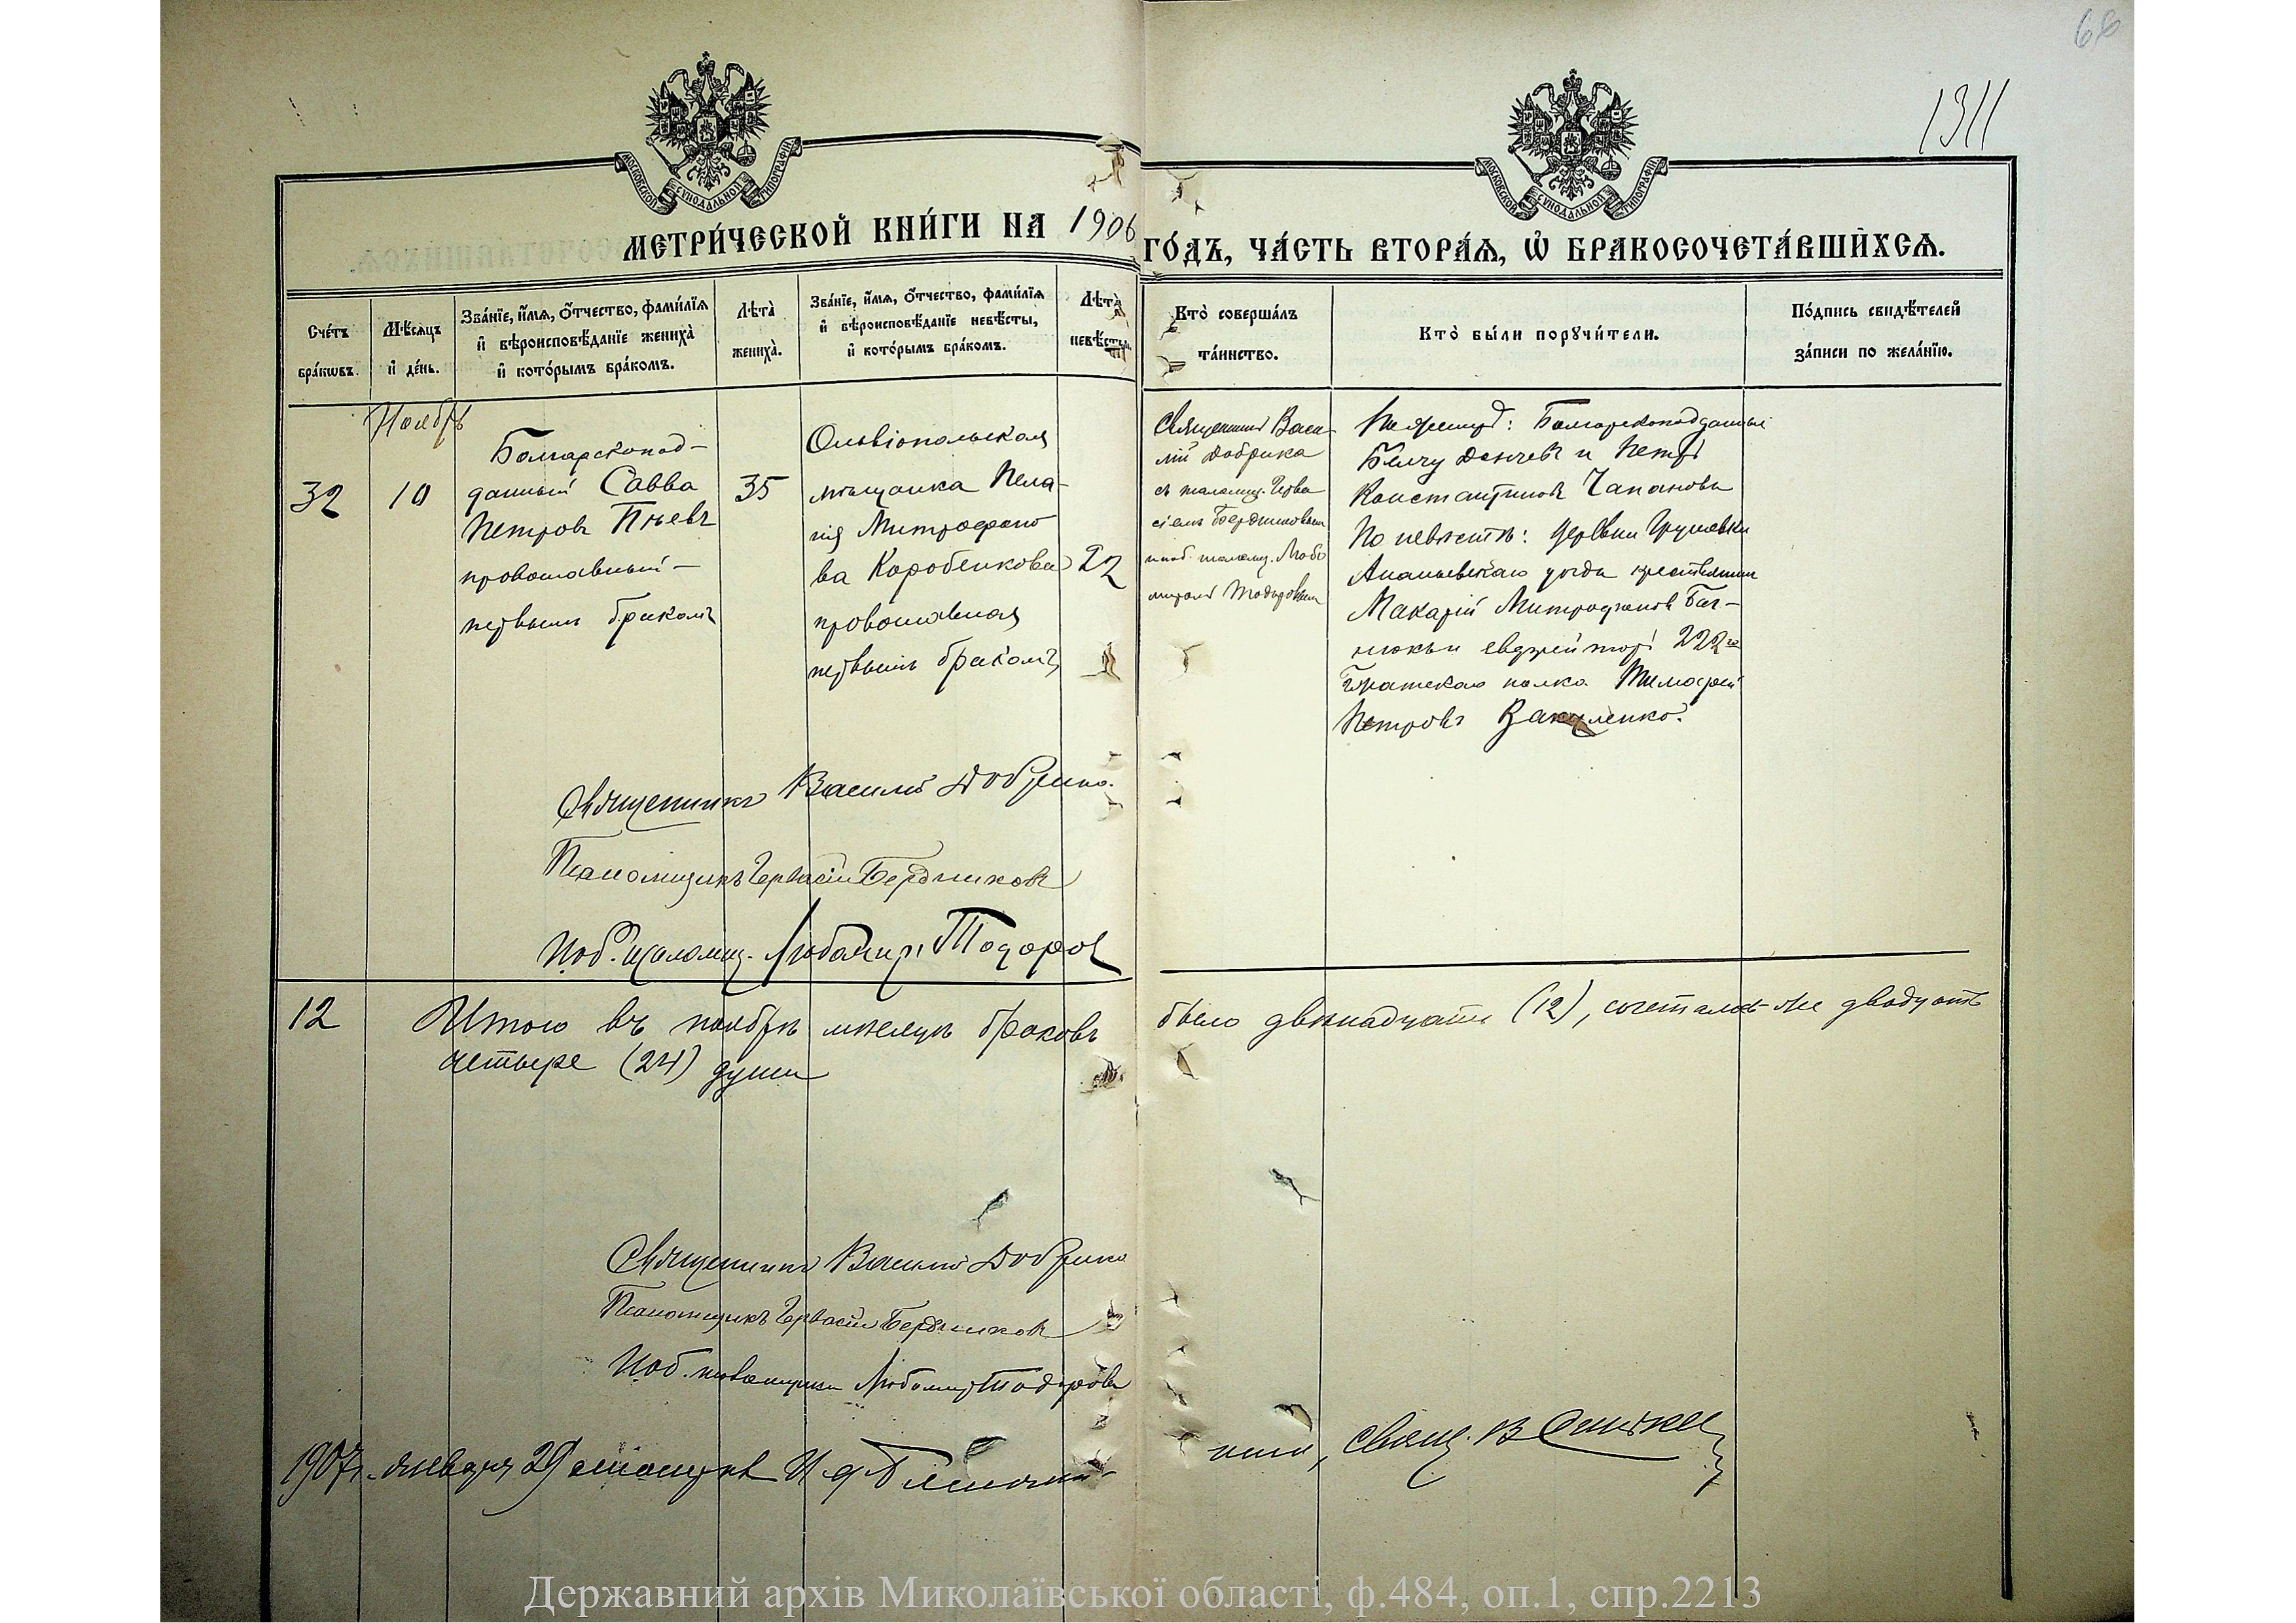 66
1311
МОСКОВСКОЙ СѴНОДАЛЬНОЙ ТИПОГРАФІИ
МОСКОВСКОЙ СѴНОДАЛЬНОЙ ТИПОГРАФІИ
МЕТРИ́ЧЕСКОЙ КНИ́ГИ НА 1906 ГО́ДЪ, ЧА́СТЬ ВТОРА́Ѧ, Ѡ҆ БРАКОСОЧЕТА́ВШИХСѦ.
Сче́тъ бра́кѡвъ.
Мѣ́сѧцъ и҆ де́нь.
Зва́нїе, и҆́мѧ, ѻ҆́тчество, фами́лїѧ и҆ вѣроисповѣ́данїе жениха̀ и҆ кото́рымъ бра́комъ.
Лѣта̀ жениха̀.
Зва́нїе, и҆́мѧ, ѻ҆́тчество, фами́лїѧ и҆ вѣроисповѣ́данїе невѣ́сты, и҆ кото́рымъ бра́комъ.
Лѣта̀ невѣ́сты.
Кто̀ соверша́лъ та́инство.
Кто̀ бы́ли порꙋчи́тели.
По́дпись свидѣ́телей за́писи по жела́нїю.
Ноябрь
32
10
Болгарскопод-
данный Савва
Петровъ Пнев
православный -
первымъ бракомъ
35
Ольвіопольская
мѣщанка Пела-
гія Митрофано
ва Коробенкова
православная
первымъ бракомъ
22
Священникъ Васи-
лій Добрика
съ псаломщ. Герва
сіемъ Бердниковым
и об. псаломщ. Любо
миромъ Тодоровым
По женихѣ: Болгарскоподданные
Бѣлчу Денчевъ и Петръ
Константиновъ Чапановы
По невѣстѣ: деревни Грушевки
Ананьевскаго уѣзда крестьянин
Макарій Митрофанов
222го
полка Тимофей
Петровъ Вакуленко.
Священникъ Василій Добрика.
Псаломщикъ Гервасій Бердников
И.об. псаломщ. Любомиръ Тодоров
12
Итого въ ноябрѣ мѣсяцѣ браковъ было двѣнадцать (12), сочеталось-же двадцать
четыре (24) души
Священникъ Василій Добрика
Псаломщикъ Гервасій Бердников
И.об. псаломщика Любомир Тодоров
1907 г. января 29 И д
Свящ. В
Державний архів Миколаївської області, ф.484, оп.1, спр.2213